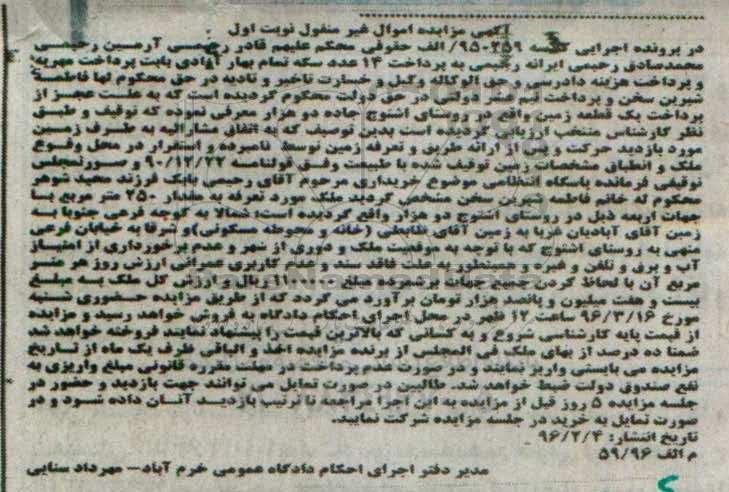 آگهی مزایده اموال غیر منقول نوبت اول
در پرونده اجرایی کلاسه ۹۵۰۲۵۹/ الف حقوقی محکم علیهم قادر رحیمی آرمین رحیمی
محمدصادق رحیمی ایرانه رحیمی به پرداخت ۱۴ عدد سکه تمام بهار آزادی بابت پرداخت مهریه
و پرداخت هزینه دادرسی و حق الوکاله وکیل و خسارت تاخیر و تادیه در حق محکوم لها فاطمه
شیرین سخن و پرداخت نیم عشر دولتی در حق دولت محکوم گردیده است که به علت عجز از
پرداخت یک قطعه زمین واقع در روستای اشتوج جاده دو هزار معرفی نموده که توقیف و طبق
نظر کارشناس منتخب ارزیابی گردیده است بدین توصیف که به اتفاق مشارالیه به طرف زمین
مورد بازدید حرکت و پس از ارائه طریق و تعرفه زمین توسط نامبرده و استقرار در محل وقوع
ملک و انطباق مشخصات زمین توقیف شده با طبیعت وفق قولنامه ۹۰/۱۲/۲۲ و صورتمجلس
توقیفی فرمانده پاسگاه انتظامی موضوع خریداری مرحوم آقای رحیمی بابک فرزند سعید شوهر
محکوم له خانم فاطمه شیرین سخن مشخص گردید ملک مورد تعرفه به مقدار ۲۵۰ متر مربع با
جهات اربعه ذیل در روستای اشتوج دو هزار واقع گردیده است؛ شمالا به کوچه فرعی جنوبا به
زمین آقای آبادیان غربا به زمین آقای (خانه و محوطه مسکونی)و شرقا به خیابان فرعی
منتهی به روستای اشتوج که با توجه به موقعیت ملک و دوری از شهر و عدم برخورداری از امتیاز
آب و برق و تلفن و غیره و همینطور به علت فاقد سند و عدم کاربری عمرانی ارزش روز هر متر
مربع آن با لحاظ کردن جمیع جهات برشمرده مبلغ ریال و ارزش کل ملک به مبلغ
بیست و هفت میلیون و پانصد هزار تومان برآورد می گردد که از طریق مزایده حضوری شنبه
مورخ ۹۶/۳/۱۶ ساعت ۱۲ ظهر در محل اجرای احکام دادگاه به فروش خواهد رسید و مزایده
از قیمت پایه کارشناسی شروع و به کسانی که بالاترین قیمت را پیشنهاد نمایند فروخته خواهد شد
ضمنا ده درصد از بهای ملک فی المجلس از برنده مزایده اخذ و الباقی ظرف یک ماه از تاریخ
مزایده می بایستی واریز نمایند و در صورت عدم پرداخت در مهلت مقرره قانونی مبلغ واریزی به
نفع صندوق دولت ضبط خواهد شد. طالبین در صورت تمایل می توانند جهت بازدید و حضور در
جلسه مزایده ۵ روز قبل از مزایده به این اجرا مراجعه تا ترتیب بازدید آنان داده شود و در
صورت تمایل به خرید در جلسه مزایده شرکت نمایید.
تاریخ انتشار: ۹۶/۲/۴
م الف ۵۹/۹۶
مدیر دفتر اجرای احکام دادگاه عمومی خرم آباد- مهرداد سنایی